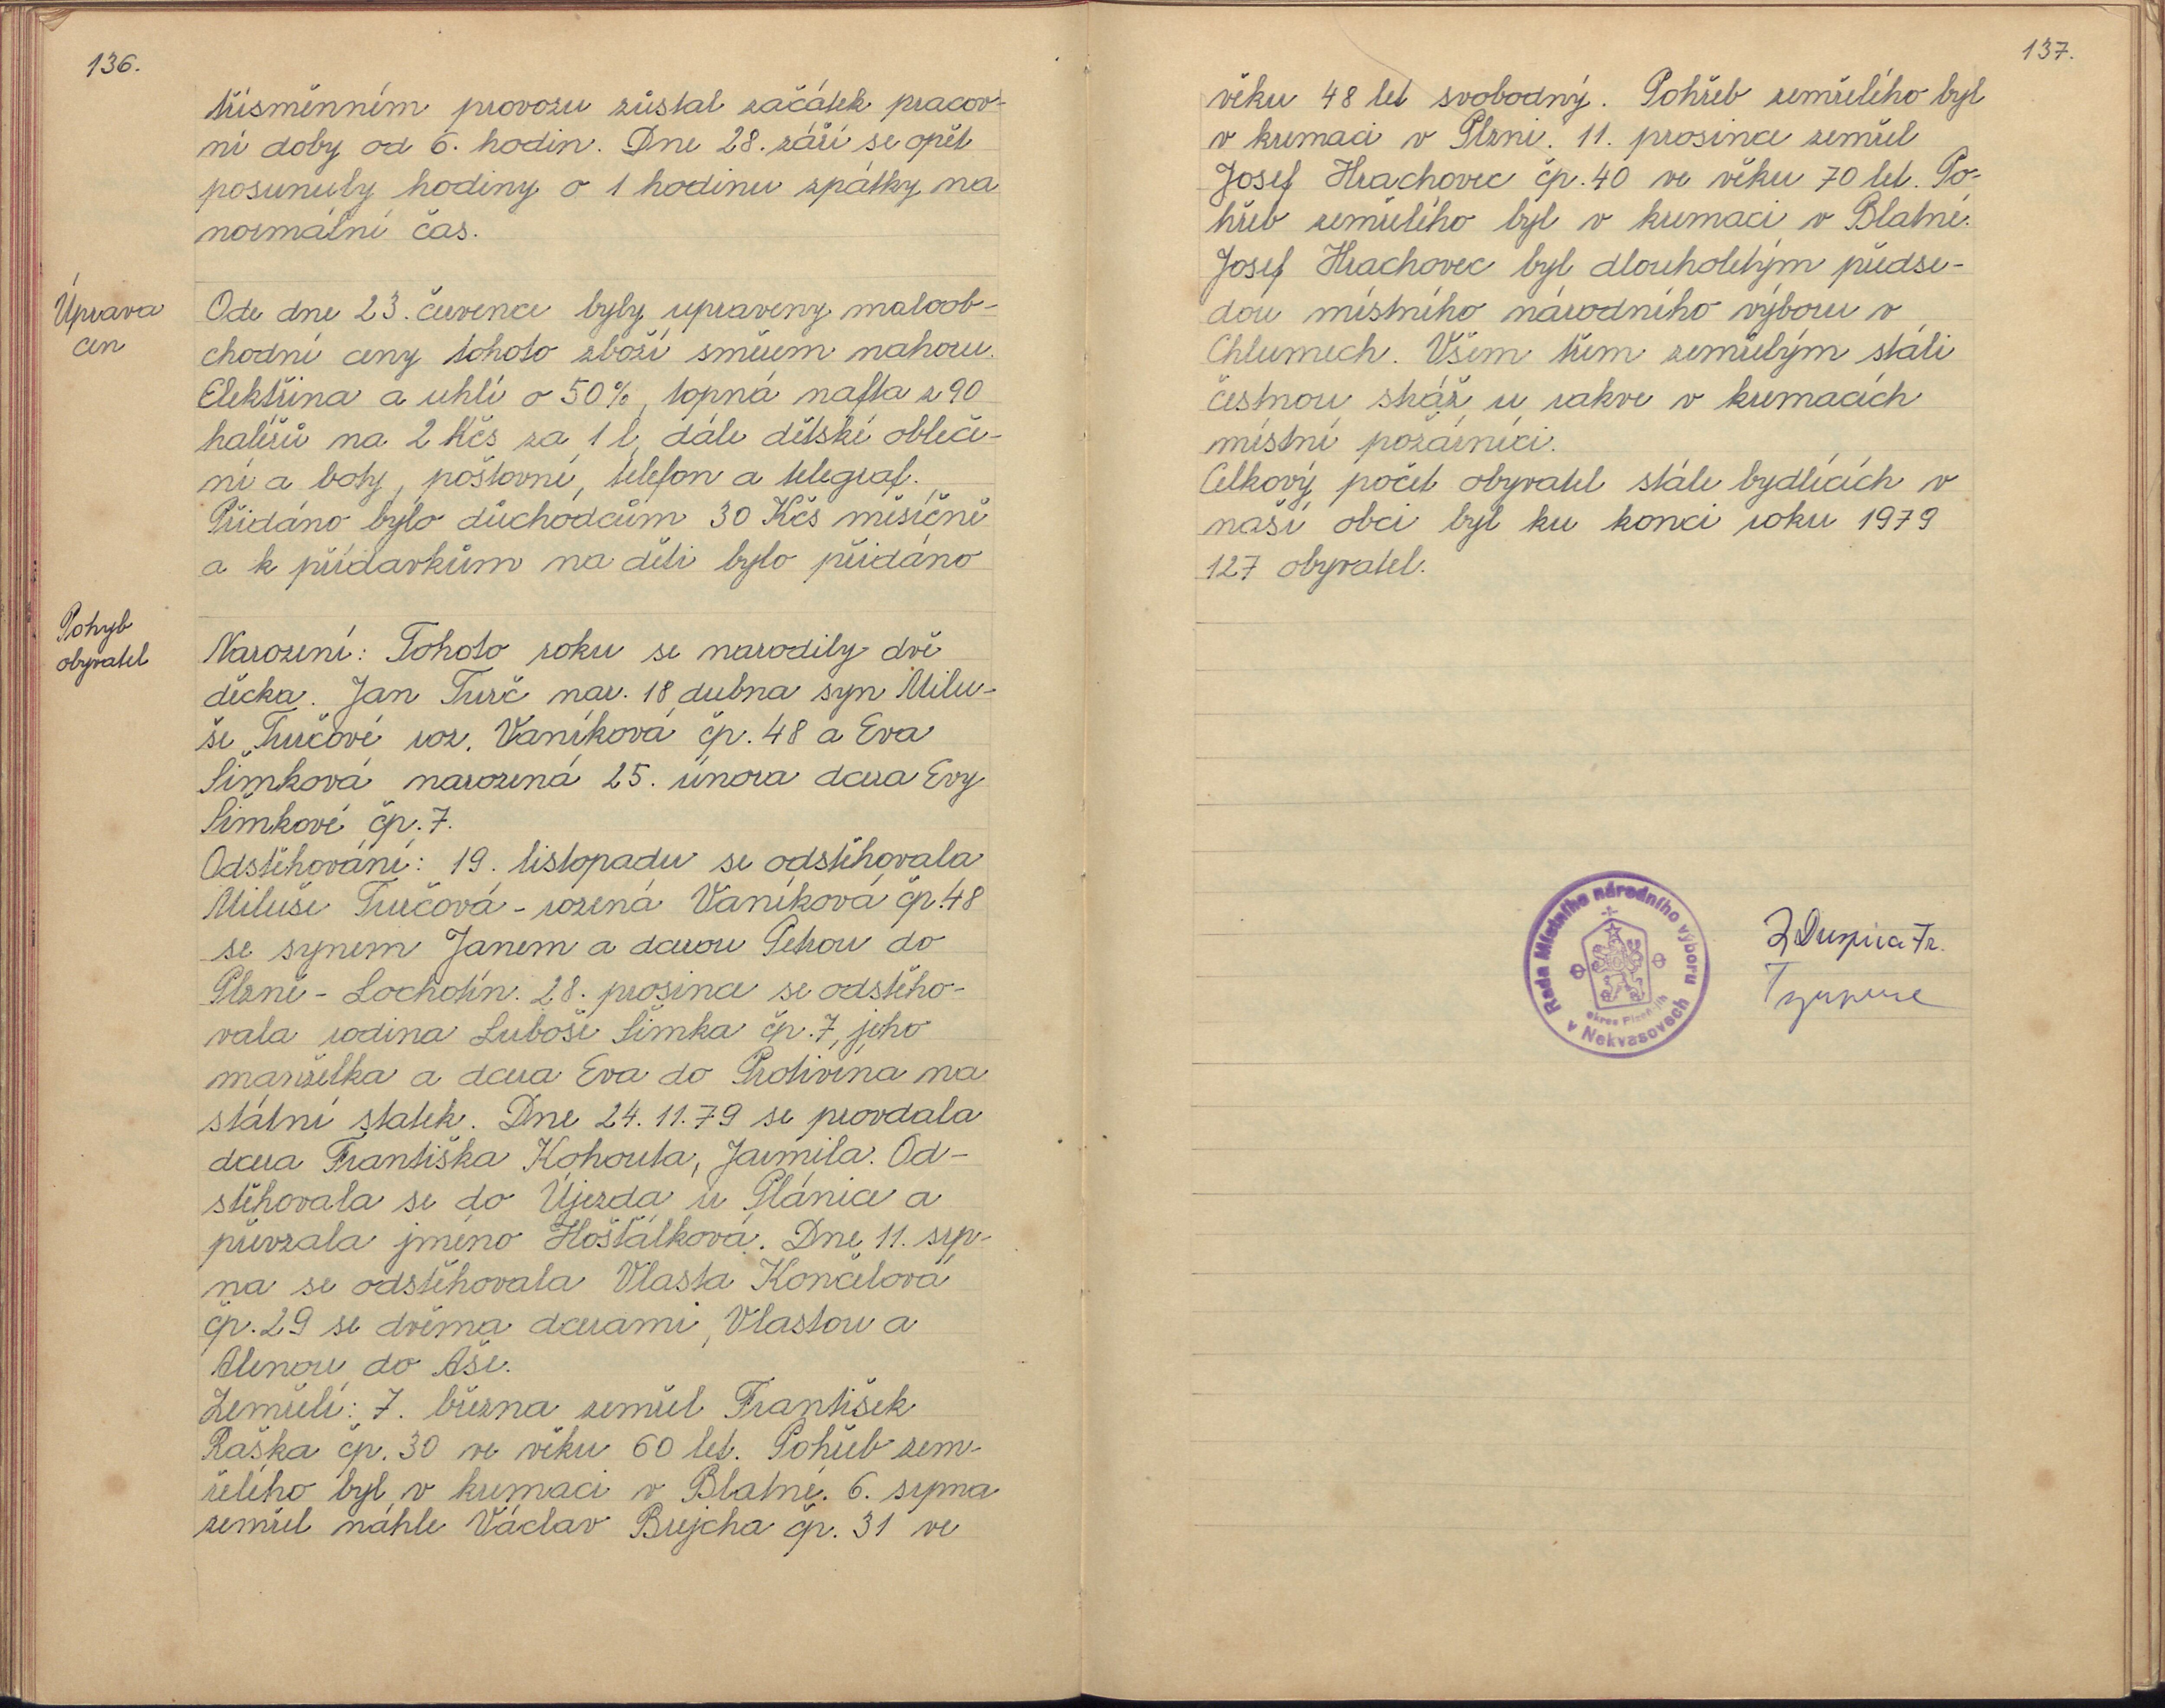 136.
třísměnném provozu zůstal začátek pracov-
ní doby od 6. hodin. Dne 28. září se opět
posunuly hodiny o 1 hodinu zpátky na
normální čas.
Úprava
cen
Ode dne 23. července byly upraveny maloob-
chodní ceny tohoto zboží směrem nahoru.
Elektřina a uhlí o 50%, topná nafta z 90
haléřů na 2 Kčs za 1 l, dále dětské obleče-
ní a boty, poštovní, telefon a telegraf.
Přidáno bylo důchodcům 30 Kčs měsíčně
a k přídavkům na děti bylo přidáno
Pohyb
obyvatel
Narození: Tohoto roku se narodily dvě
děcka. Jan Turč nar. 18 dubna syn Milu-
še Turčové roz. Vaníková čp. 48 a Eva
Šimková narozená 25. února dcera Evy
Šimkové čp. 7.
Odstěhování: 19. listopadu se odstěhovala
Miluše Turčová - rozená Vaníková čp. 48
se synem Janem a dcerou Petrou do
Plzně - Lochotín. 28. prosince se odstěho-
vala rodina Luboše Šimka čp. 7, jeho
manželka a dcera Eva do Protivína na
státní statek. Dne 24. 11. 79 se provdala
dcera Františka Kohouta, Jarmila. Od-
stěhovala se do Újezda u Plánice a
převzala jméno Hošťálková. Dne 11. srp-
na se odstěhovala Vlasta Končelová
čp. 29 se dvěma dcerami, Vlastou a
Alenou do Aše.
Zemřelí: 7. března zemřel František
Raška čp. 30 ve věku 60 let. Pohřeb zem-
řelého byl v kremaci v Blatné. 6. srpna
zemřel náhle Václav Brejcha čp. 31 ve
137.
věku 48 let svobodný. Pohřeb zemřelého byl
v kremaci v Plzni. 11. prosince zemřel
Josef Hrachovec čp. 40 ve věku 70 let. Po-
hřeb zemřelého byl v kremaci v Blatné.
Josef Hrachovec byl dlouholetým předse-
dou místního národního výboru v
Chlumech. Všem třem zemřelým stáli
čestnou stráž u rakve v kremacích
místní požárníci.
Celkový počet obyvatel stále bydlících v
naší obci byl ku konci roku 1979
127 obyvatel.
Rada Místního národního výboru
v Nekvasovech
okres Plzeň-jih